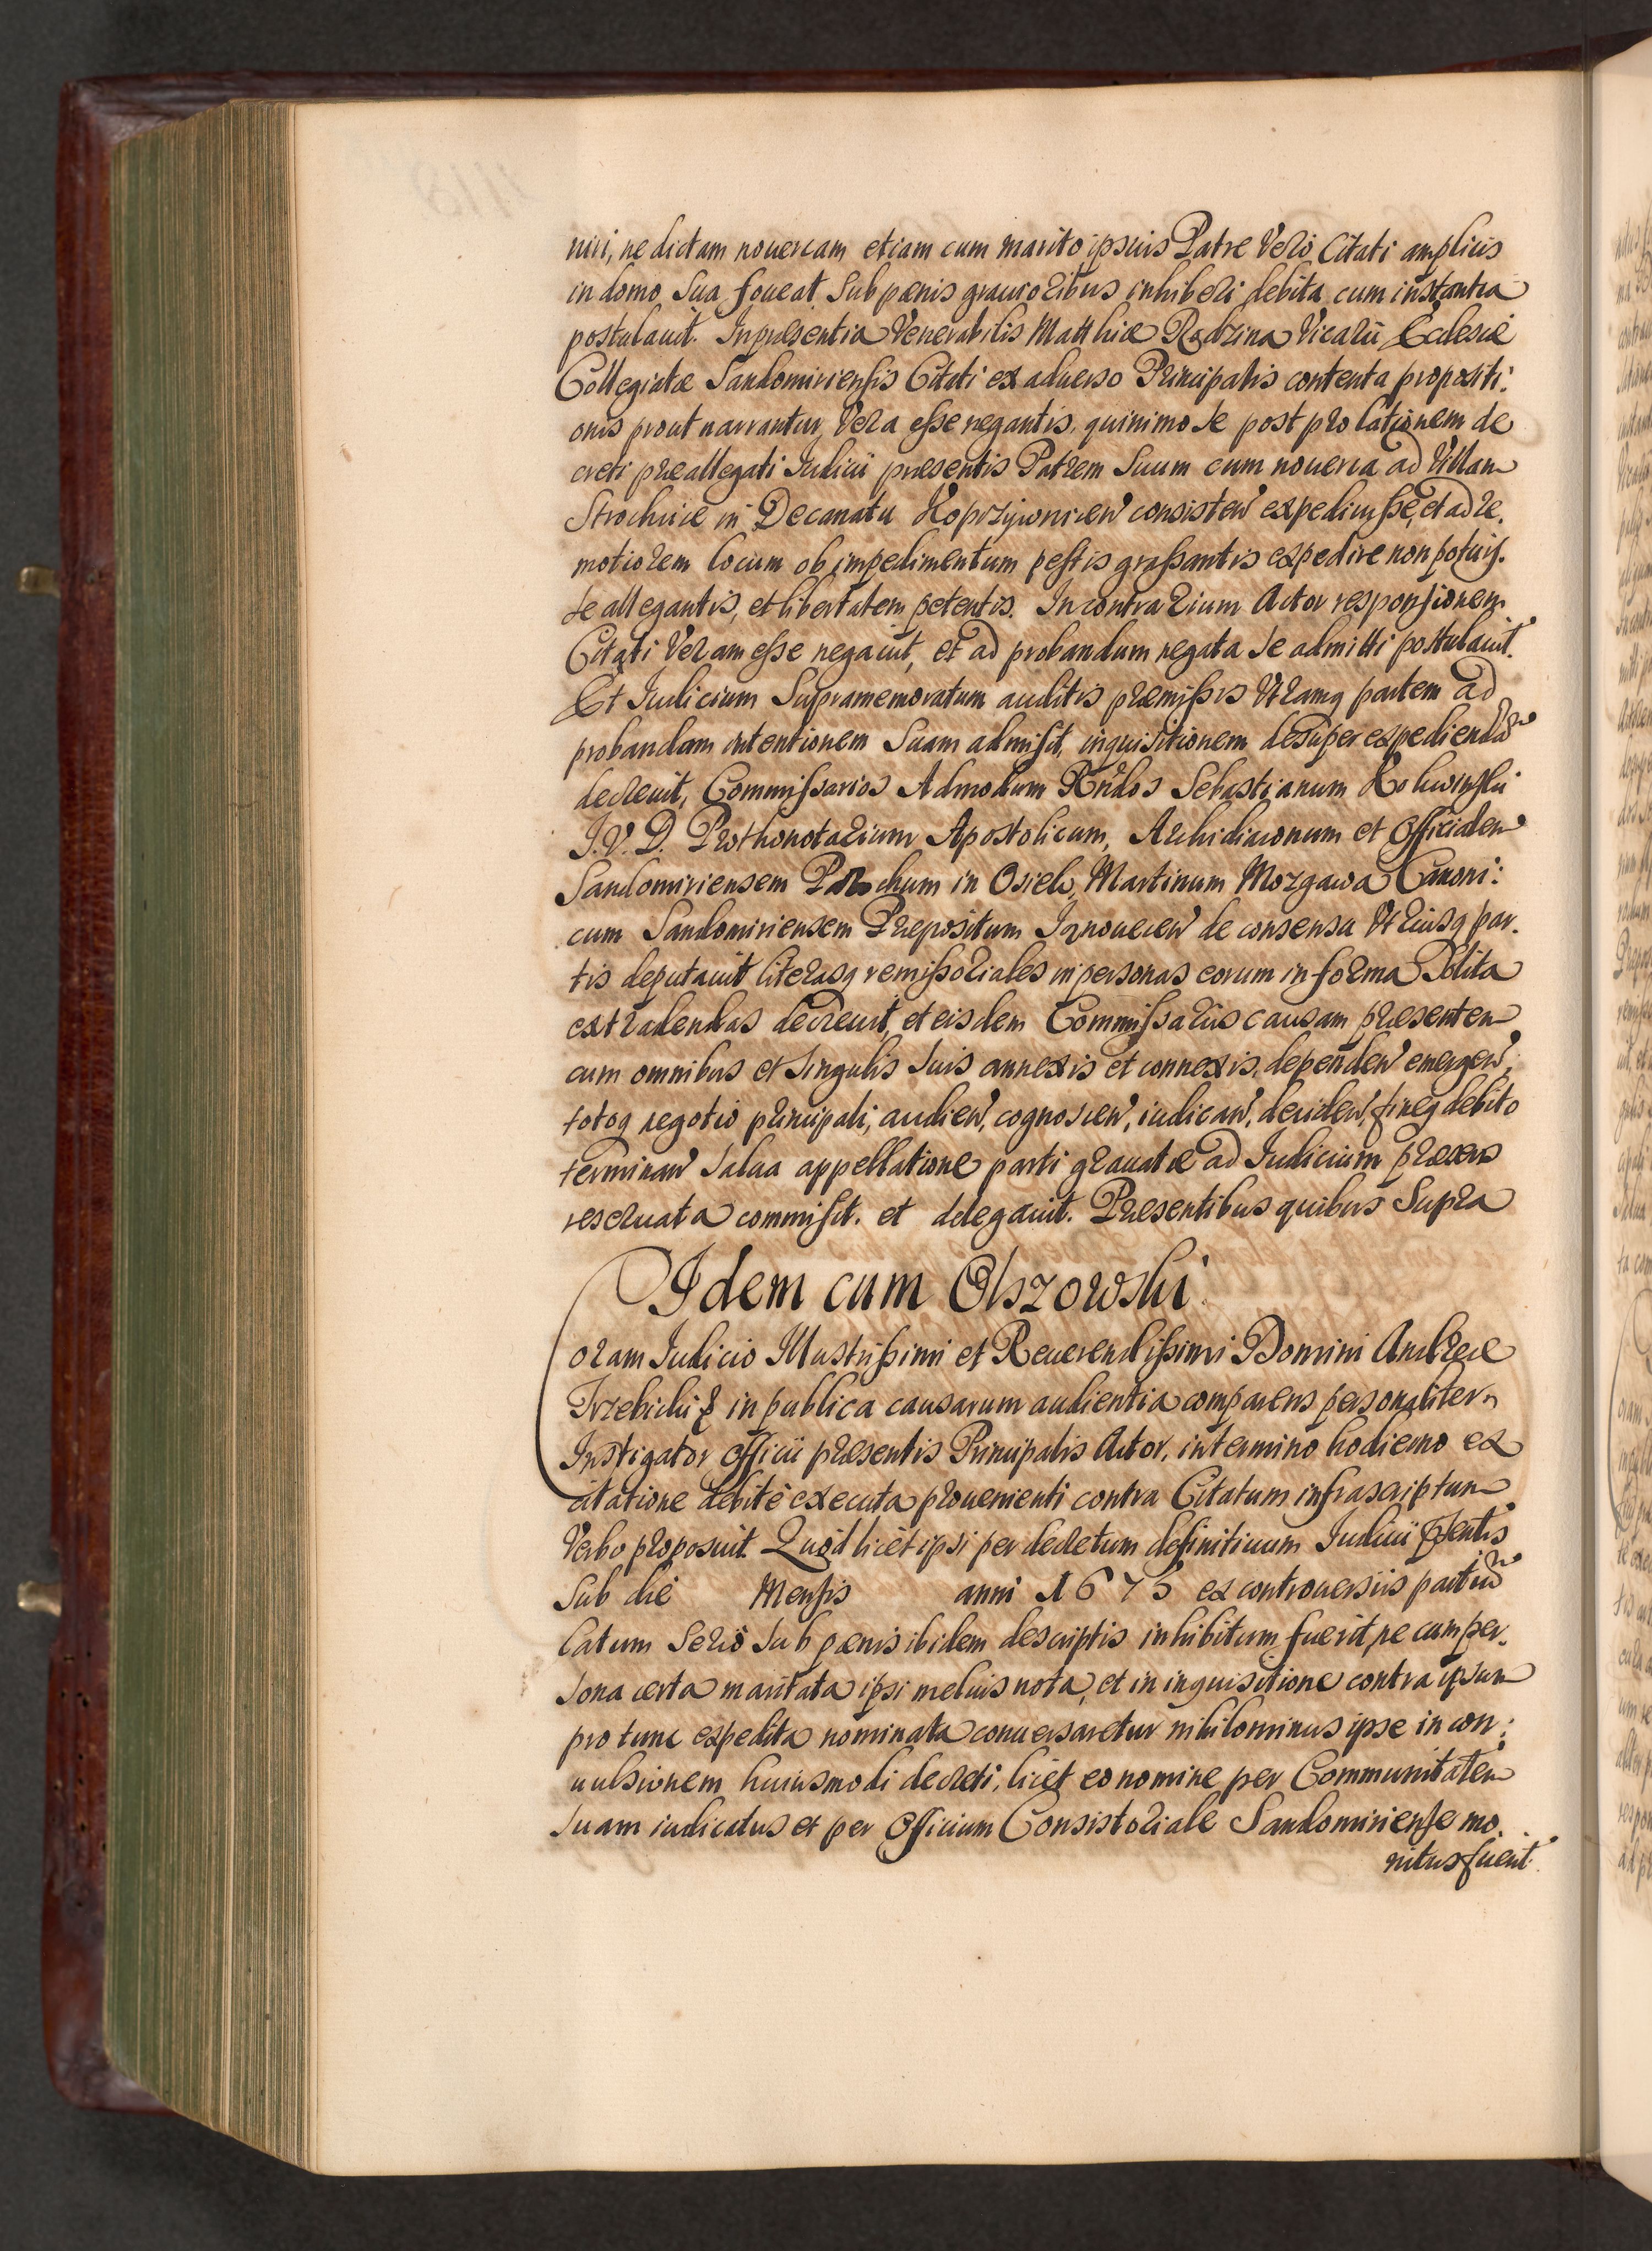 niri, ne dictam nouercam etiam cum marito ipsius Patre Verò Citati amplius
in domo Sua foueat Sub pœnis grauioribus inhiberi debita cum instantia
postulauit. In præsentia Venerabilis Matthiæ Vicarii Ecclesiæ
Collegiatæ Sandomiriensis Citati ex aduerso Principalis contenta propositi:
onis prout narrantur, Vera esse negantis, quinimo se post prolationem de
creti præallegati Iudicii præsentis Patrem Suum cum nouerca ad Villam
in Decanatu consisten expediuisse, et ad re.
motiorem locum ob impedimentum pestis grassantis expedire non potuis.
se allegantis, et libertatem petentis. In contrarium Actor responsionem
Citati Veram esse negauit, et ad probandum negata se admitti postulauit.
Et Iudicium Supramemoratum auditis præmissis Utramq partem ad
probandam intentionem Suam admisit, inquisitionem desuper expediendã
decreuit, Commissarios Admodum Rndos Sebastianum
I. V. D. Prothonotarium Apostolicum, Archidiaconum et Officialem
Sandomiriensem Parochum in Osiek, Martinum Mozgawa Canoni:
cum Sandomiriensem Præpositum de consensu Utriusq par.
tis deputauit literasq remissoriales in personas eorum in forma Solita
extradendas decreuit, et eisdem Commissariis causam præsentem
cum omnibus et singulis suis annexis et connexis, dependen emergen,
totoq negotio principali, audien, cognoscen, iudican, deciden, fineq debito
terminan salua appellatione parti grauatæ ad Iudicium præsens
reseruata commisit. et delegauit. Præsentibus quibus Supra
Idem cum Olszowski.
Coram Iudicio Illustrissimi et Reuerendissimi Domini Andreæ
Trzebicki & in publica causarum audientia comparens personaliter
Instigator Officii præsentis Principalis Actor, in termino hodierno ex
citatione debitè executa prouenienti contra Citatum infrascriptum
Verbo proposuit. Quòd licèt ipsi per decretum definitiuum Iudicii pſentis
Sub die Mensis anni 1675 ex controuersiis partiũ
latum Seriò Sub pœnis ibidem descriptis inhibitum fuerit, ne cum per.
sona certa maritata ipsi melius nota, et in inquisitione contra ipsum
pro tunc expedita nominata conuersaretur nihilominus ipse in con:
uulsionem huiusmodi decreti, licèt eo nomine per Communitatem
suam iudicatus et per Officium Consistoriale Sandomiriense mo.
nitus fuerit.